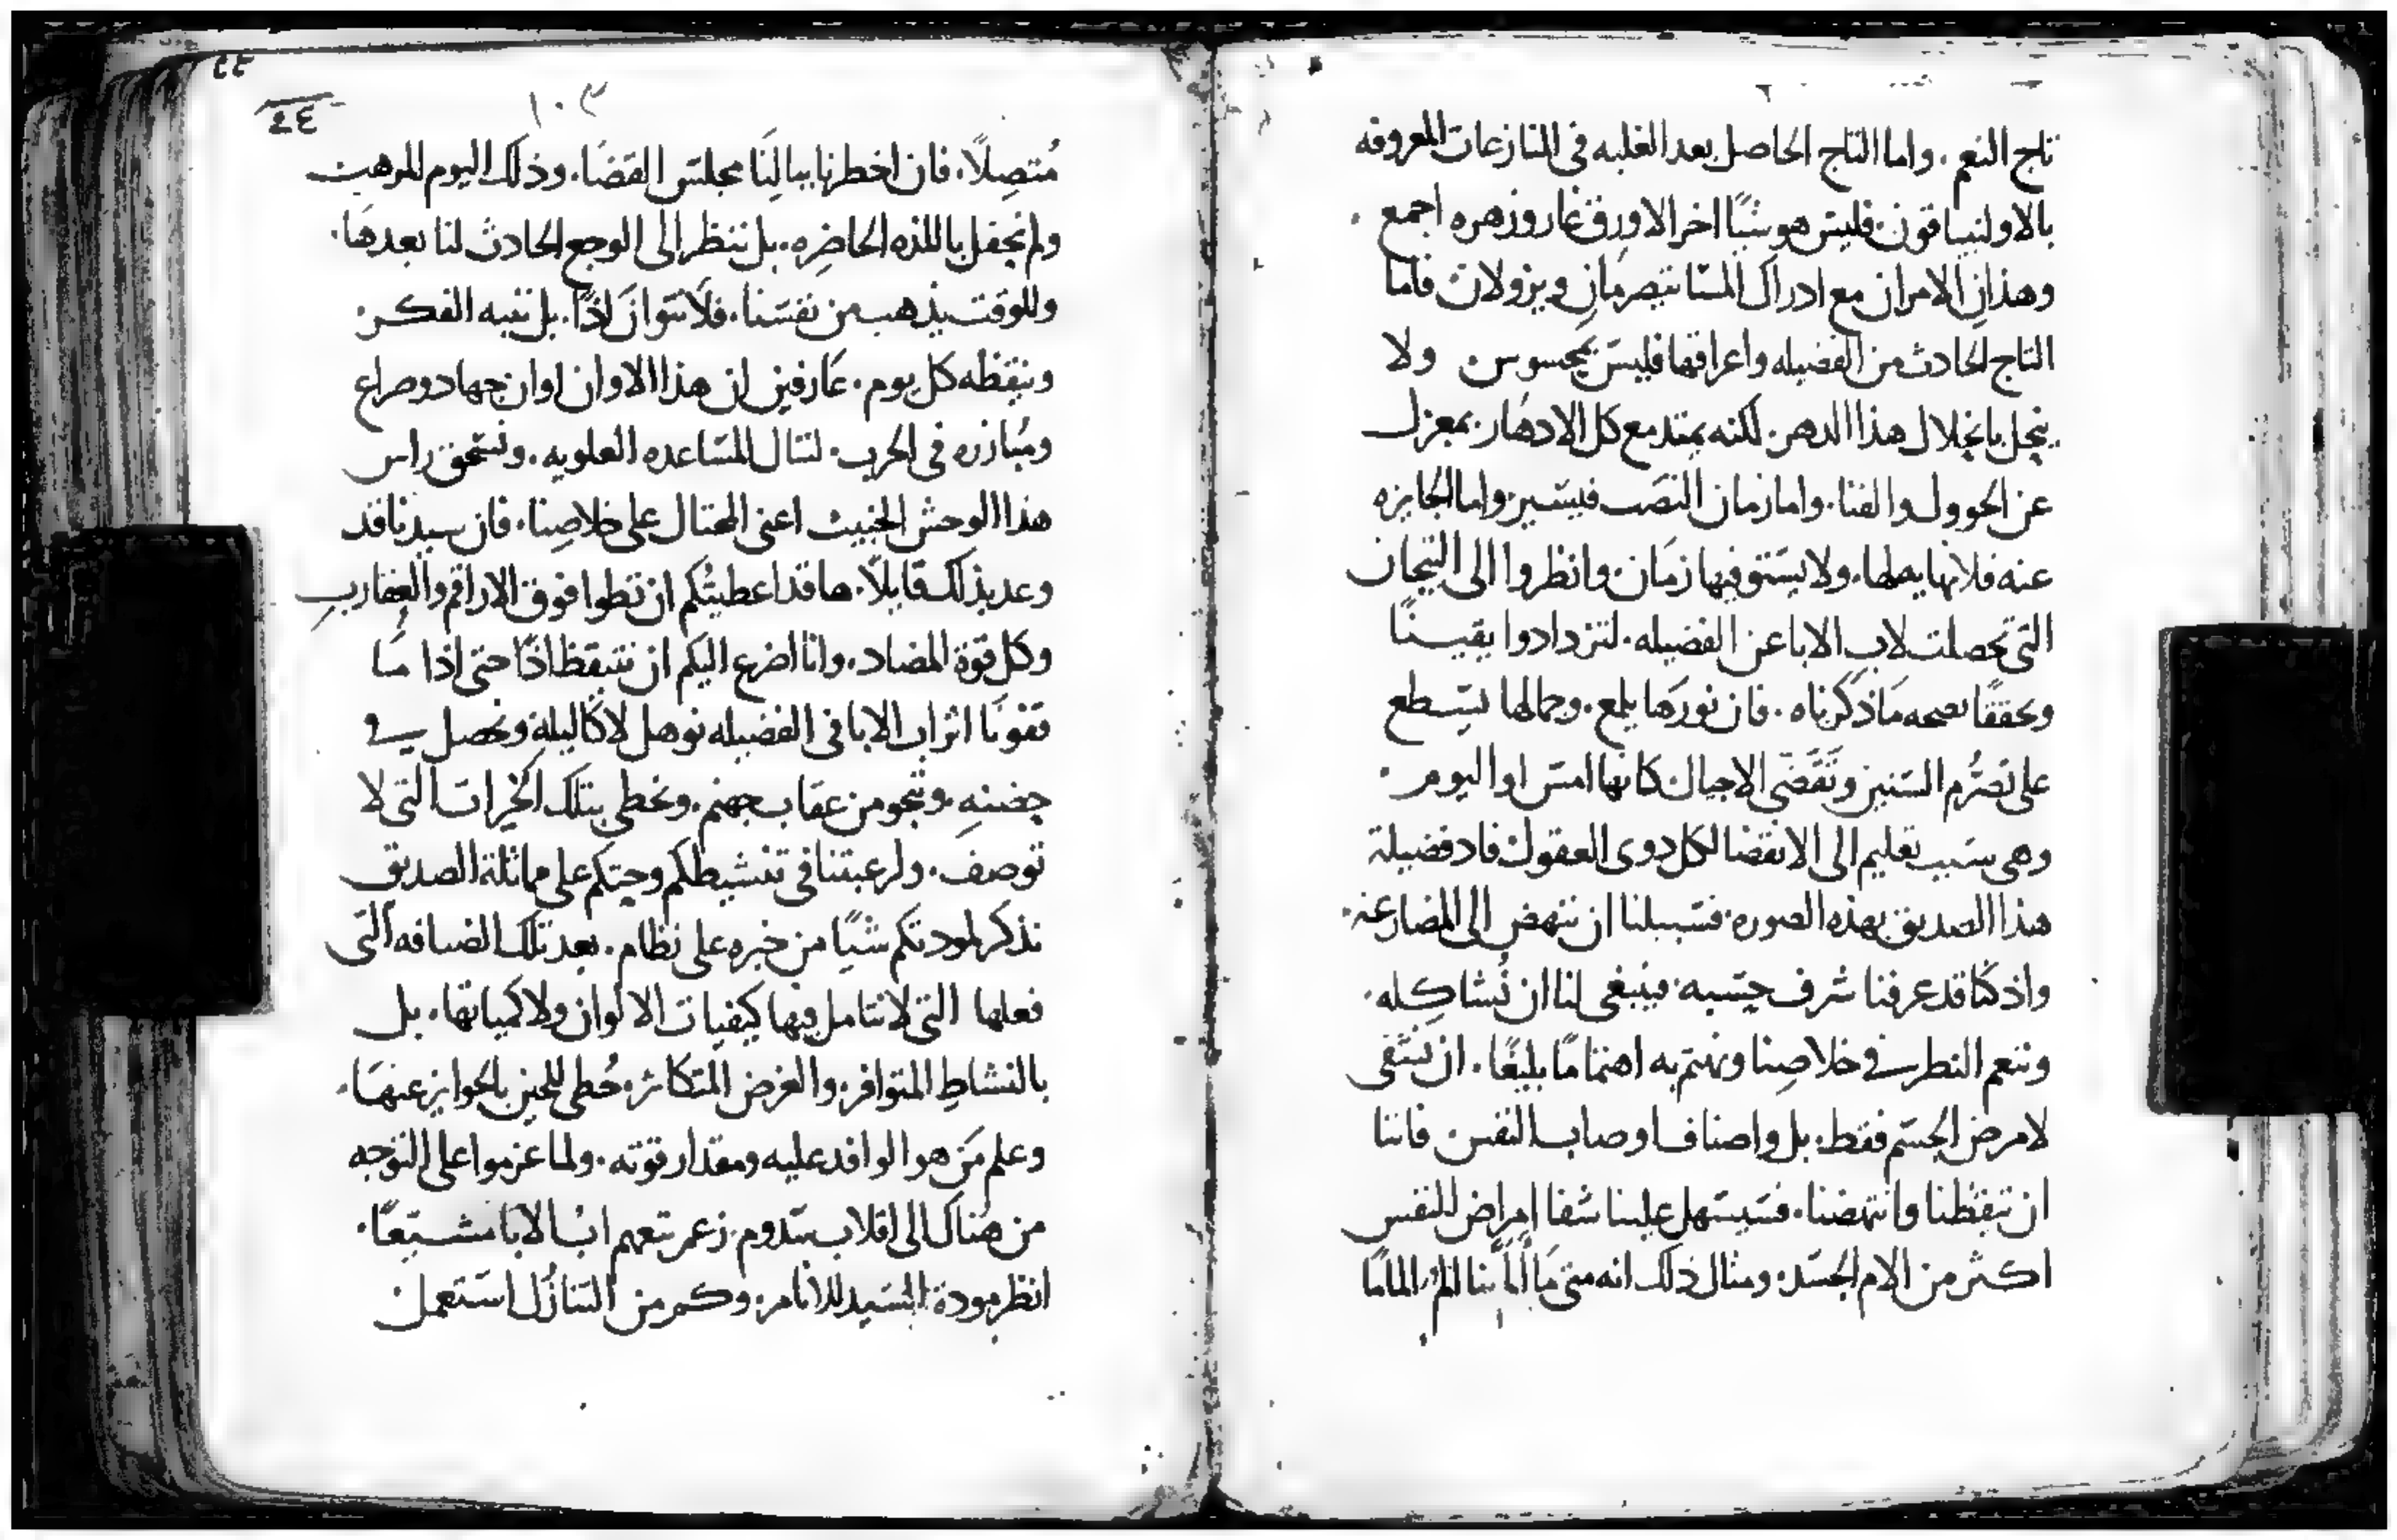 تاج النعم. واما التاج الحاصل بعد الغلبه فى المنازعات المعروفه
بالاولنبياقون. فليس هو شيًا اخر الا ورق غار وزهره اجمع.
وهذان الامران مع ادراك المسا ينصرمان ويزولان فاما
التاج الحادث من الفضيله واعراقها فليس بمحسوس ولا
ينحل بانحلال هذا الدهر. لكنه يمتد مع كل الادهار. بمعزل
عن الحوول والفنا. واما زمان النصب فيسير. واما الجايزه
عنه فلا نهايه لها. ولا يستوفيها زمان. وانظروا الى التيجان
التى تحصلت لاب الابا عن الفضيله. لتزدادوا يقينًا
وتحققًا بصحه ما ذكرناه. فان نورها يلمع. وجمالها يسطع
على تصرُّم السنين وتَقَضّى الاجيال كانها امس او اليوم.
وهى سبب تعليم الى الانقضا لكل ذوى العقول. فاد فضيلة
هذا الصديق بهذه الصوره. فسبيلنا ان ننهض الى المضارعه.
واذ كنا قد عرفنا شرف حسبه. فينبغى لنا ان نُشاكِله.
وننعم النظر فى خلاصِنا ونهتم به اهتمامًا بليغًا. ان نشفى
لا مرض الجسم فقط. بل واصناف اوصاب النفس. فاننا
ان تيقظنا وانتهضنا. فسيسهل علينا شفا امراض النفس
اكثر من الام الجسد. ومثال ذلك انه متى ما المَّ بنا المٌ المامًا
٢٤
١٠٣
مُتصِلًا. فان اخطرنا ببالِنَا مجلس القضَا. وذلك اليوم المرهب
ولم نحفل باللذه الحاضِره. بل ننظر الى الوجع الحادث لنا بعدهَا.
وللوقت يذهب من نفسنا. فلا نتوانَ اذًا. بل ننبه الفكر.
ونيقظه كل يوم. عَارفين ان هذا الاوان اوان جهاد وصراع
ومُبارزه فى الحرب. لننال المساعده العلويه. ونسحق راس
هذا الوحش الخبيث اعنى المحتال على خلاصِنا. فان سيدنا قد
وعد بذلك قايلًا. ها قد اعطيتُكم ان تطوا فوق الاراقم والعقارب
وكل قوة المضاد. وانا اضرع اليكم ان نتيقظ اذًا حتى اذا مَا
قفونَا اثر اب الابا فى الفضيله نوهل لاكاليله. ونحصل فى
حِضنهِ. وننجو من عقاب جهنم. ونحظى بتلك الخيرات التى لا
توصف. ولرغبتنا فى تنشيطكم وحثكم على مماثلة الصديق
نذكر لمودتكم شيًا من خبره على نظام. بعد تلك الضيافه التى
فعلها التى لا نتامل فيها كيفيات الالوان ولا كمياتها. بل
بالنشاطِ المتوافر. والغرض المتكاثر. حُظى للحين بالجوايز عنهَا.
وعلم مَن هو الوافد عليه ومقدار قوته. ولما عزموا على التوجه
من هُناك الى اقلاب سدوم. زعم تبعهم ابُ الابا مشيّعًا.
انظر مودة السيد للانام. وكم من التنازُل استعمل